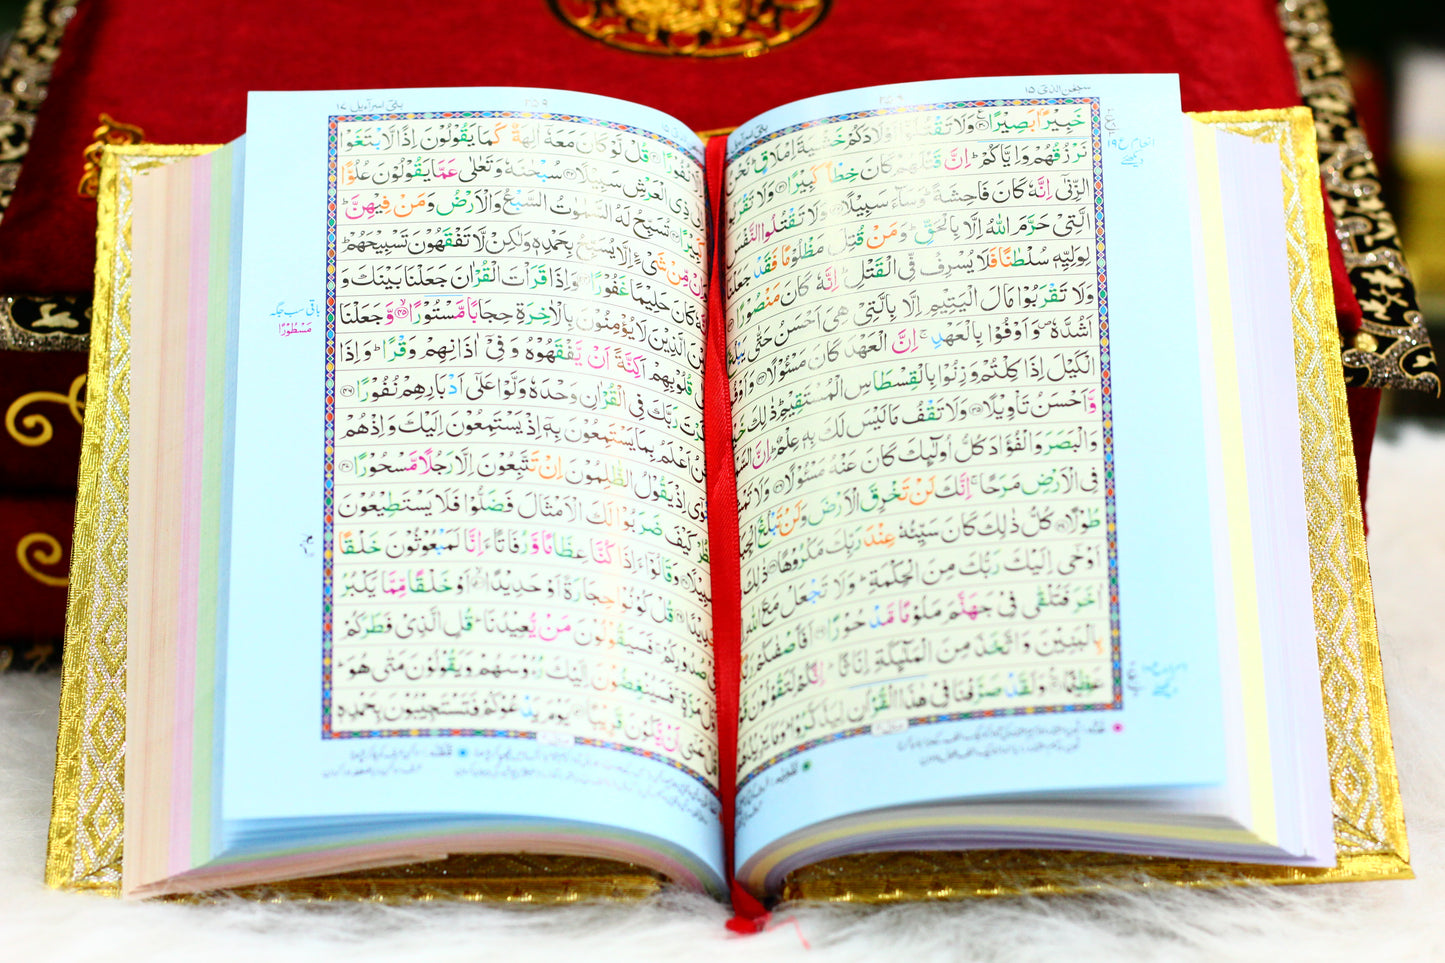 سبحٰن الذی ۱۵
خَبِيْرًاۢ بَصِيْرًا ۳۰ وَلَا تَقْتُلُوْۤا اَوْلَادَكُمْ خَشْيَةَ اِمْلَاقٍ ؕ نَحْنُ
نَرْزُقُهُمْ وَاِيَّاكُمْ ؕ اِنَّ قَتْلَهُمْ كَانَ خِطْاً كَبِيْرًا ۳۱ وَلَا تَقْرَبُوا
الزِّنٰۤى اِنَّهٗ كَانَ فَاحِشَةً ؕ وَسَآءَ سَبِيْلًا ۳۲ وَلَا تَقْتُلُوا النَّفْسَ
الَّتِيْ حَرَّمَ اللّٰهُ اِلَّا بِالْحَقِّ ؕ وَمَنْ قُتِلَ مَظْلُوْمًا فَقَدْ جَعَلْنَا
لِوَلِيِّهٖ سُلْطٰنًا فَلَا يُسْرِفْ فِّي الْقَتْلِ ؕ اِنَّهٗ كَانَ مَنْصُوْرًا
وَلَا تَقْرَبُوْا مَالَ الْيَتِيْمِ اِلَّا بِالَّتِيْ هِيَ اَحْسَنُ حَتّٰى يَبْلُغَ
اَشُدَّهٗ وَاَوْفُوْا بِالْعَهْدِ ۚ اِنَّ الْعَهْدَ كَانَ مَسْـُٔوْلًا ۳۴ وَاَوْفُوا
الْكَيْلَ اِذَا كِلْتُمْ وَزِنُوْا بِالْقِسْطَاسِ الْمُسْتَقِيْمِ ؕ ذٰلِكَ خَيْرٌ
وَّاَحْسَنُ تَاْوِيْلًا ۳۵ وَلَا تَقْفُ مَا لَيْسَ لَكَ بِهٖ عِلْمٌ ؕ اِنَّ السَّمْعَ
وَالْبَصَرَ وَالْفُؤَادَ كُلُّ اُولٰٓئِكَ كَانَ عَنْهُ مَسْـُٔوْلًا ۳۶ وَلَا تَمْشِ
فِي الْاَرْضِ مَرَحًا ۚ اِنَّكَ لَنْ تَخْرِقَ الْاَرْضَ وَلَنْ تَبْلُغَ الْجِبَالَ
طُوْلًا ۳۷ كُلُّ ذٰلِكَ كَانَ سَيِّئُهٗ عِنْدَ رَبِّكَ مَكْرُوْهًا ۳۸ ذٰلِكَ
اَوْحٰۤى اِلَيْكَ رَبُّكَ مِنَ الْحِكْمَةِ ؕ وَلَا تَجْعَلْ مَعَ اللّٰهِ
اٰخَرَ فَتُلْقٰى فِيْ جَهَنَّمَ مَلُوْمًا مَّدْحُوْرًا ۳۹ اَفَاَصْفٰىكُمْ
بِالْبَنِيْنَ وَاتَّخَذَ مِنَ الْمَلٰٓئِكَةِ اِنَاثًا ؕ اِنَّكُمْ لَتَقُوْلُوْنَ
عَظِيْمًا ۴۰ وَلَقَدْ صَرَّفْنَا فِيْ هٰذَا الْقُرْاٰنِ لِيَذَّكَّرُوْا ؕ وَمَا يَزِيْدُ
بنی اسرآءیل ۱۷
نُفُوْرًا ۴۱ قُلْ لَّوْ كَانَ مَعَهٗۤ اٰلِهَةٌ كَمَا يَقُوْلُوْنَ اِذًا لَّابْتَغَوْا
اِلٰى ذِي الْعَرْشِ سَبِيْلًا ۴۲ سُبْحٰنَهٗ وَتَعٰلٰى عَمَّا يَقُوْلُوْنَ عُلُوًّا
كَبِيْرًا ۴۳ تُسَبِّحُ لَهُ السَّمٰوٰتُ السَّبْعُ وَالْاَرْضُ وَمَنْ فِيْهِنَّ ؕ
وَاِنْ مِّنْ شَيْءٍ اِلَّا يُسَبِّحُ بِحَمْدِهٖ وَلٰكِنْ لَّا تَفْقَهُوْنَ تَسْبِيْحَهُمْ ؕ
اِنَّهٗ كَانَ حَلِيْمًا غَفُوْرًا ۴۴ وَاِذَا قَرَاْتَ الْقُرْاٰنَ جَعَلْنَا بَيْنَكَ وَ
بَيْنَ الَّذِيْنَ لَا يُؤْمِنُوْنَ بِالْاٰخِرَةِ حِجَابًا مَّسْتُوْرًا ۴۵ وَّجَعَلْنَا
عَلٰى قُلُوْبِهِمْ اَكِنَّةً اَنْ يَّفْقَهُوْهُ وَفِيْۤ اٰذَانِهِمْ وَقْرًا ؕ وَاِذَا
ذَكَرْتَ رَبَّكَ فِي الْقُرْاٰنِ وَحْدَهٗ وَلَّوْا عَلٰۤى اَدْبَارِهِمْ نُفُوْرًا ۴۶
نَحْنُ اَعْلَمُ بِمَا يَسْتَمِعُوْنَ بِهٖۤ اِذْ يَسْتَمِعُوْنَ اِلَيْكَ وَاِذْ هُمْ
نَجْوٰۤى اِذْ يَقُوْلُ الظّٰلِمُوْنَ اِنْ تَتَّبِعُوْنَ اِلَّا رَجُلًا مَّسْحُوْرًا ۴۷
اُنْظُرْ كَيْفَ ضَرَبُوْا لَكَ الْاَمْثَالَ فَضَلُّوْا فَلَا يَسْتَطِيْعُوْنَ
سَبِيْلًا ۴۸ وَقَالُوْۤا ءَاِذَا كُنَّا عِظَامًا وَّرُفَاتًا ءَاِنَّا لَمَبْعُوْثُوْنَ خَلْقًا
جَدِيْدًا ۴۹ قُلْ كُوْنُوْا حِجَارَةً اَوْ حَدِيْدًا ۵۰ اَوْ خَلْقًا مِّمَّا يَكْبُرُ
فِيْ صُدُوْرِكُمْ ۚ فَسَيَقُوْلُوْنَ مَنْ يُّعِيْدُنَا ؕ قُلِ الَّذِيْ فَطَرَكُمْ
اَوَّلَ مَرَّةٍ ۚ فَسَيُنْغِضُوْنَ اِلَيْكَ رُءُوْسَهُمْ وَيَقُوْلُوْنَ مَتٰى هُوَ ؕ
قُلْ عَسٰۤى اَنْ يَّكُوْنَ قَرِيْبًا ۵۱ يَوْمَ يَدْعُوْكُمْ فَتَسْتَجِيْبُوْنَ بِحَمْدِهٖ
باقی سب جگہ
مَسْطُوْرًا